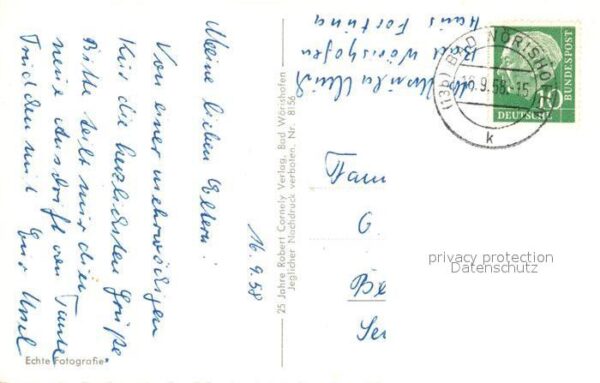 16.9.58
Meine lieben Eltern!
Von einer mehrwöchigen
Kur die herzlichsten Grüße.
Bitte teilt mir die
neue Anschrift von Tante
mit. Eure Ursel
Echte Fotografie
25 Jahre Robert Cornely Verlag, Bad Wörishofen
Jeglicher Nachdruck verboten. Nr. 8156
Bad Wörishofen
Haus Fortuna
(13b) BAD WÖRISHO
16.9.58.-15
k
10
DEUTSCHE
BUNDESPOST
Fam
G
Be
Ser
privacy protection
Datenschutz